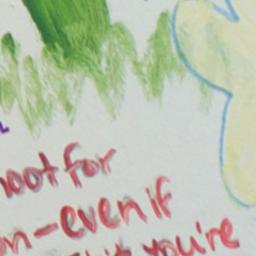 hoot for
on-even if
you're